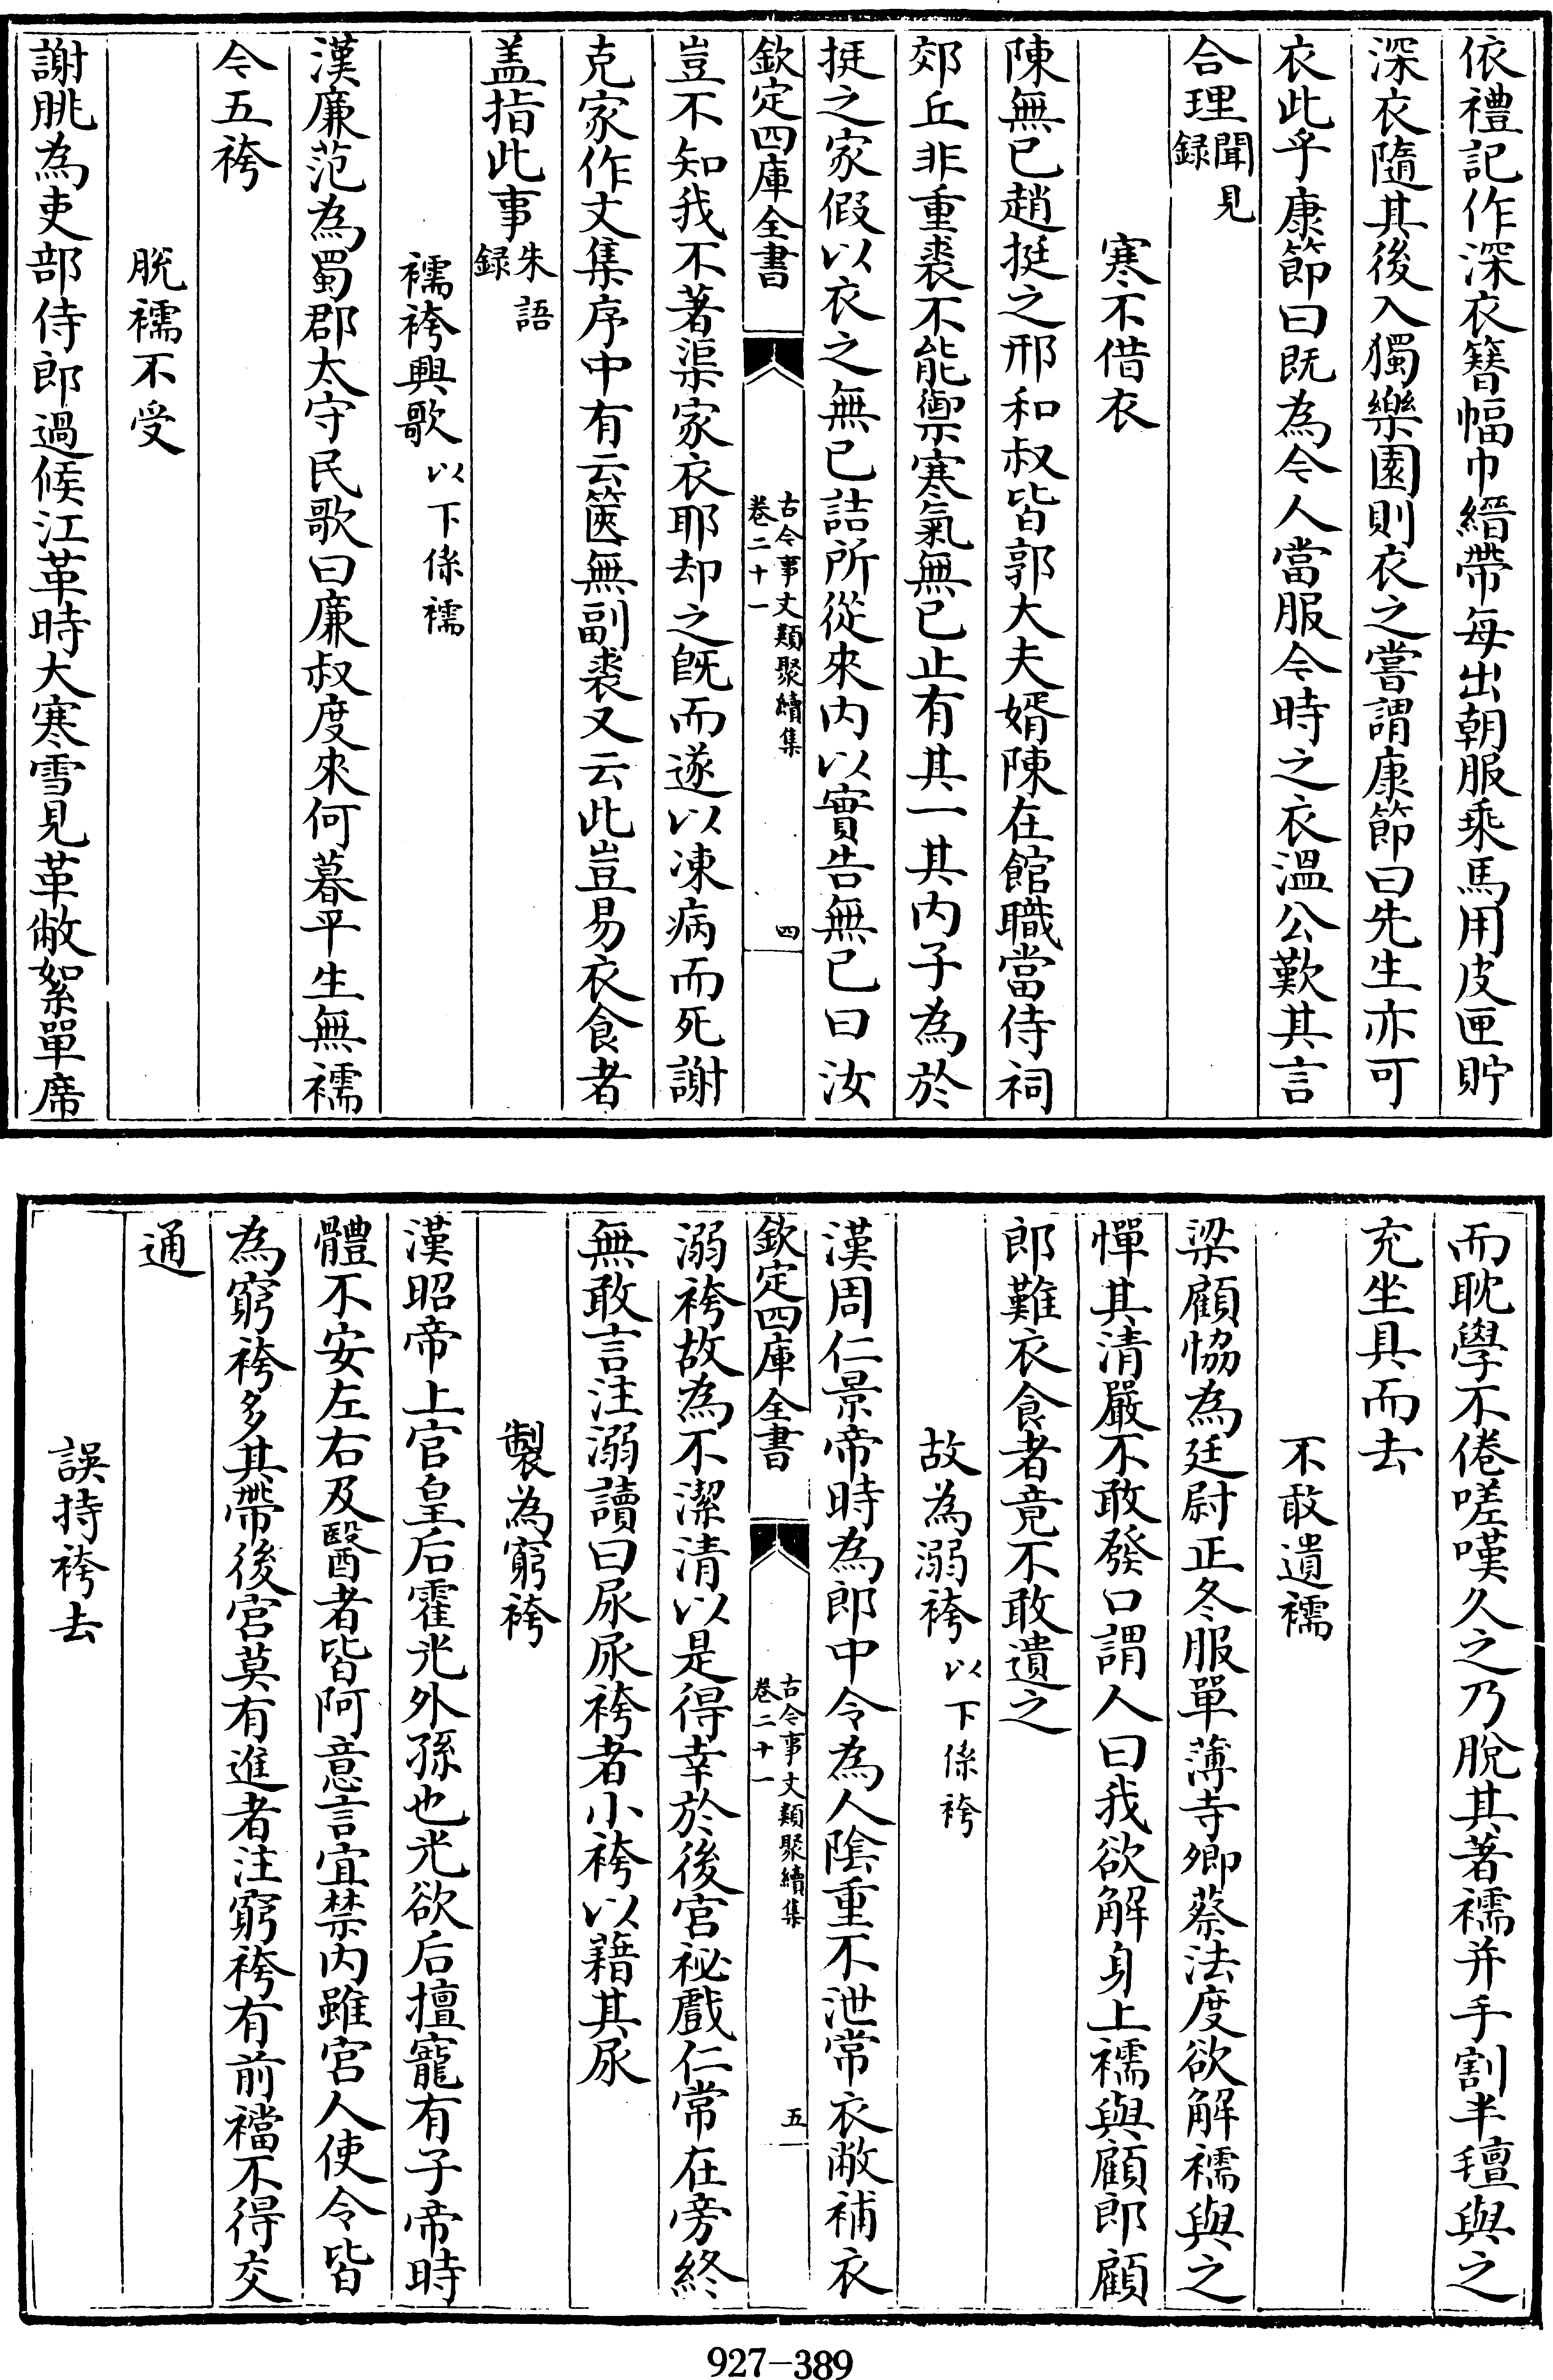 依禮記作深衣簪幅巾縉帶每出朝服乘馬用皮匣貯
深衣隨其後入獨樂園則衣之嘗謂康節曰先生亦可
衣此乎康節曰既為今人當服今時之衣溫公歎其言
合理聞見録
寒不借衣
陳無已趙挺之邢和叔皆郭大夫婿陳在館職當侍祠
郊丘非重裘不能禦寒氣無已止有其一其内子為於
挺之家假以衣之無已詰所從來内以實告無已曰汝
欽定四庫全書
古今事文類聚續集
卷二十一
四
豈不知我不著渠家衣耶却之既而遂以凍病而死謝
克家作文集序中有云篋無副裘又云此豈易衣食者
盖指此事朱語録
襦袴興歌以下係襦
漢廉范為蜀郡太守民歌曰廉叔度來何暮平生無襦
今五袴
脫襦不受
謝朓為吏部侍郎過候江革時大寒雪見革敝絮單席
而耽學不倦嗟嘆久之乃脫其著襦并手割半氊與之
充坐具而去
不敢遺襦
梁顧協為廷尉正冬服單薄寺卿蔡法度欲解襦與之
憚其清嚴不敢發口謂人曰我欲解身上襦與顧郎顧
郎難衣食者竟不敢遺之
故為溺袴以下係袴
漢周仁景帝時為郎中令為人陰重不泄常衣敝補衣
欽定四庫全書
古今事文類聚續集
卷二十一
五
溺袴故為不潔清以是得幸於後宮祕戲仁常在旁終
無敢言注溺讀曰尿尿袴者小袴以藉其尿
製為窮袴
漢昭帝上官皇后霍光外孫也光欲后擅寵有子帝時
體不安左右及醫者皆阿意言宜禁内雖宮人使令皆
為窮袴多其帶後宮莫有進者注窮袴有前襠不得交
通
誤持袴去
927-389